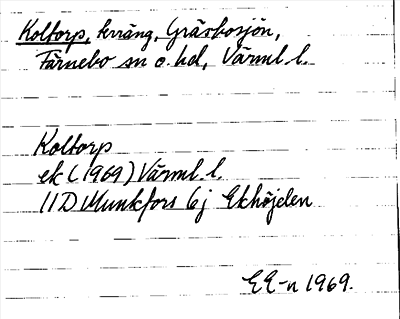 Koltorp, kvräng, Gräsbosjön,
Färnebo sn o. hd, Värml. l.
Koltorp
ek (1969) Värml. l.
11D Munkfors 6j Ekhöjelen
EE-n 1969.